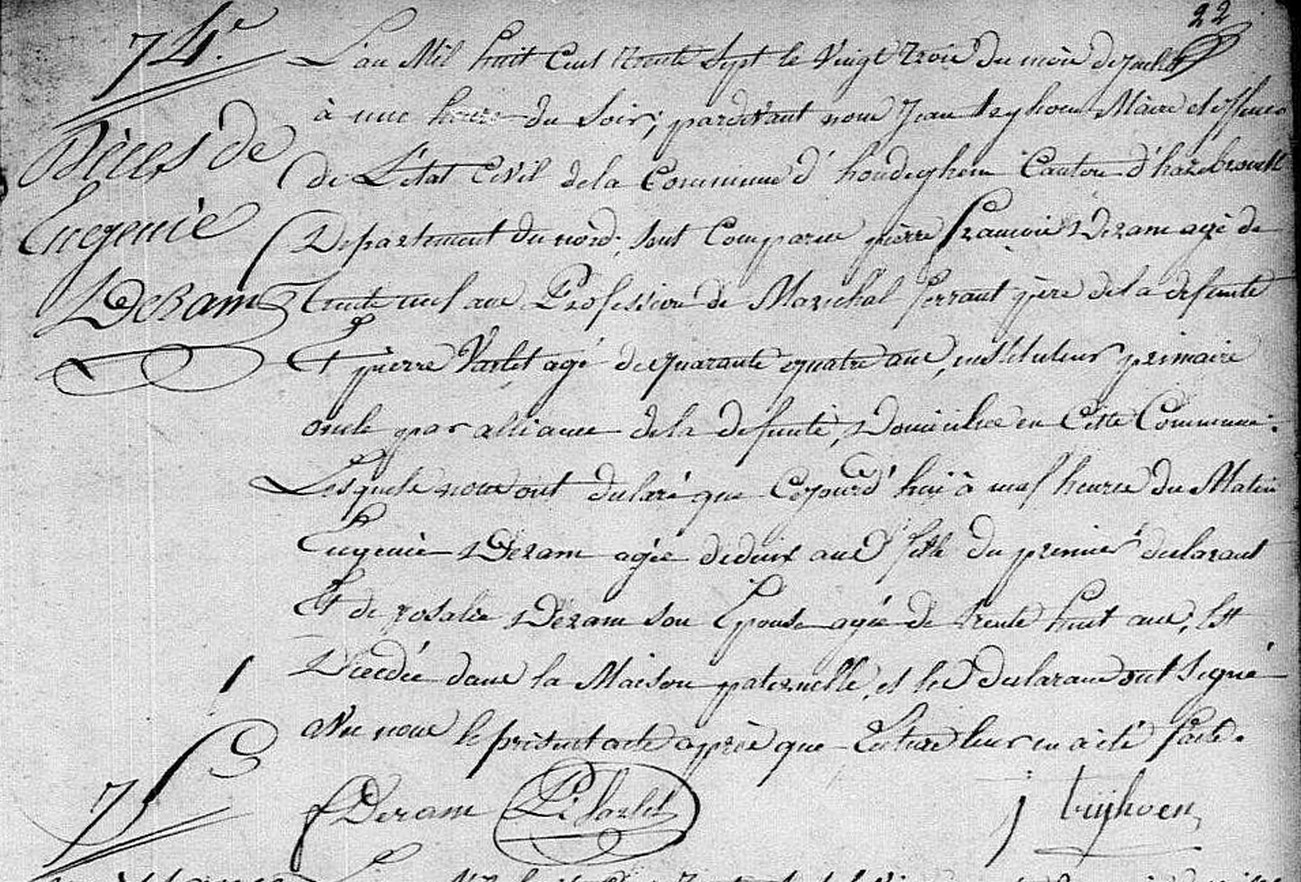 22
74.e
Décès de
Eugenie
Deram
L'an Mil huit Cent trente Sept le Vingt trois du mois de juillet
à une heure du Soir, pardevant nous Jean Mâire et officier
de L'état Civil dela Commune d'houdeghem Canton d'hazebrouck
Departement du nord, sont Comparus pierre francois Deram agé de
trente neuf ans Profession de Maréchal ferrant père dela defunte
Et pierre Varlet agé de quarante quatre ans, instituteur primaire
oncle par alliance dela defunte, Domicilies en Cette Commune.
Lesquels nous ont declaré que Cejourd'hui à neuf heures du Matin
Eugenie Deram agée de deux ans fille du premier declarant
Et de rosalie Deram son Epouse agée de trente huit ans, Est
Décedée dans la Maison paternelle, et les declarans ont Signé
avec nous le présent acte après que Lecture leur en a été faite.
f Deram P. Varlet j tuyhoen
75